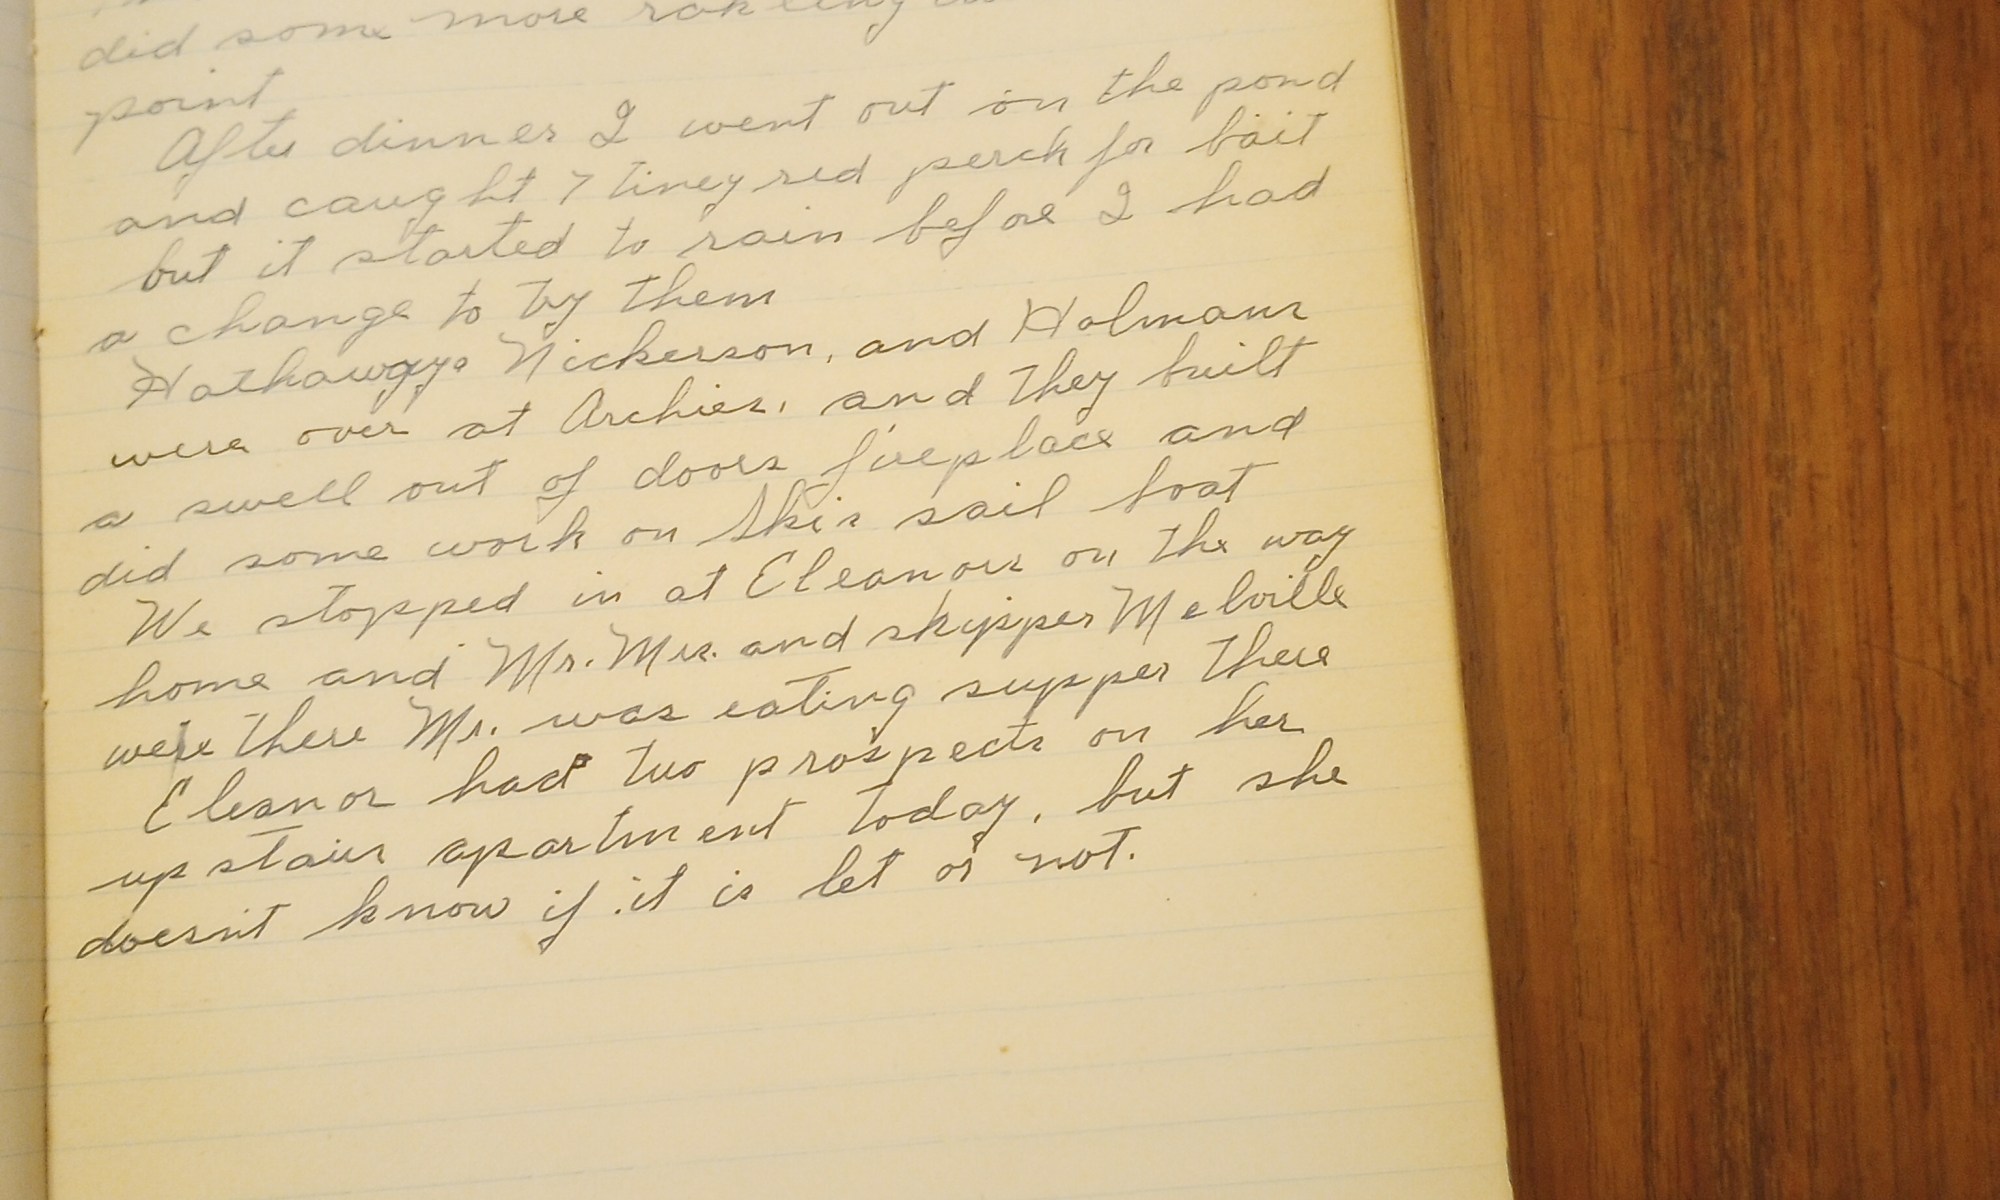 did some more
point
After dinner I went out on the pond
and caught 7 tiney red perch for bait
but it started to rain before I had
a change to try them
Hathaways Nickerson, and Holmans
were over at Archies, and they built
a swell out of doors fireplace and
did some work on skis sail boat
We stopped in at Eleanors on the way
home and Mr. Mrs. and skipper Melville
were there Mr. was eating supper there
Eleanor had two prospects on her
up stairs apartment today, but she
doesn't know if it is let or not.